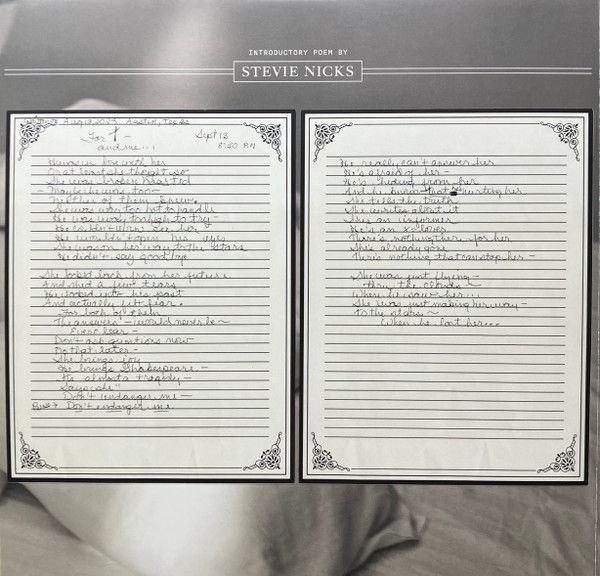 INTRODUCTORY POEM BY
STEVIE NICKS
Aug 13, 2023 Austin, Texas
For T -
and me...
Sept 13
8:50 PM
He was in love with her
Or at least she thought so
She was broken hearted
- Maybe he was too -
Neither of them knew
She was way too hot to handle
He was too high to try -
He couldn't even see her
He wouldn't open his eyes
She was on her way to the stars
He didn't say goodbye
She looked back from her future
And shed a few tears
He looked into his past
And actually felt fear.
For both of them
The answers - would never be -
Ever clear -
Don't ask questions now
Do that later -
She brings joy
He brings Shakespeare -
It's almost a tragedy -
Says she"
Don't endanger me -
Don't endanger me
He really can't answer her
He's afraid of her -
He's hiding from her
And he knows that he's hurting her
She tells the truth
She writes about it
She's an informer
He's an x-lover
There's nothing there for her
She's already gone
There's nothing that can stop her -
She was just flying -
thru the clouds -
When he saw her...
She was just making her way -
to the stars ~
When he lost her...